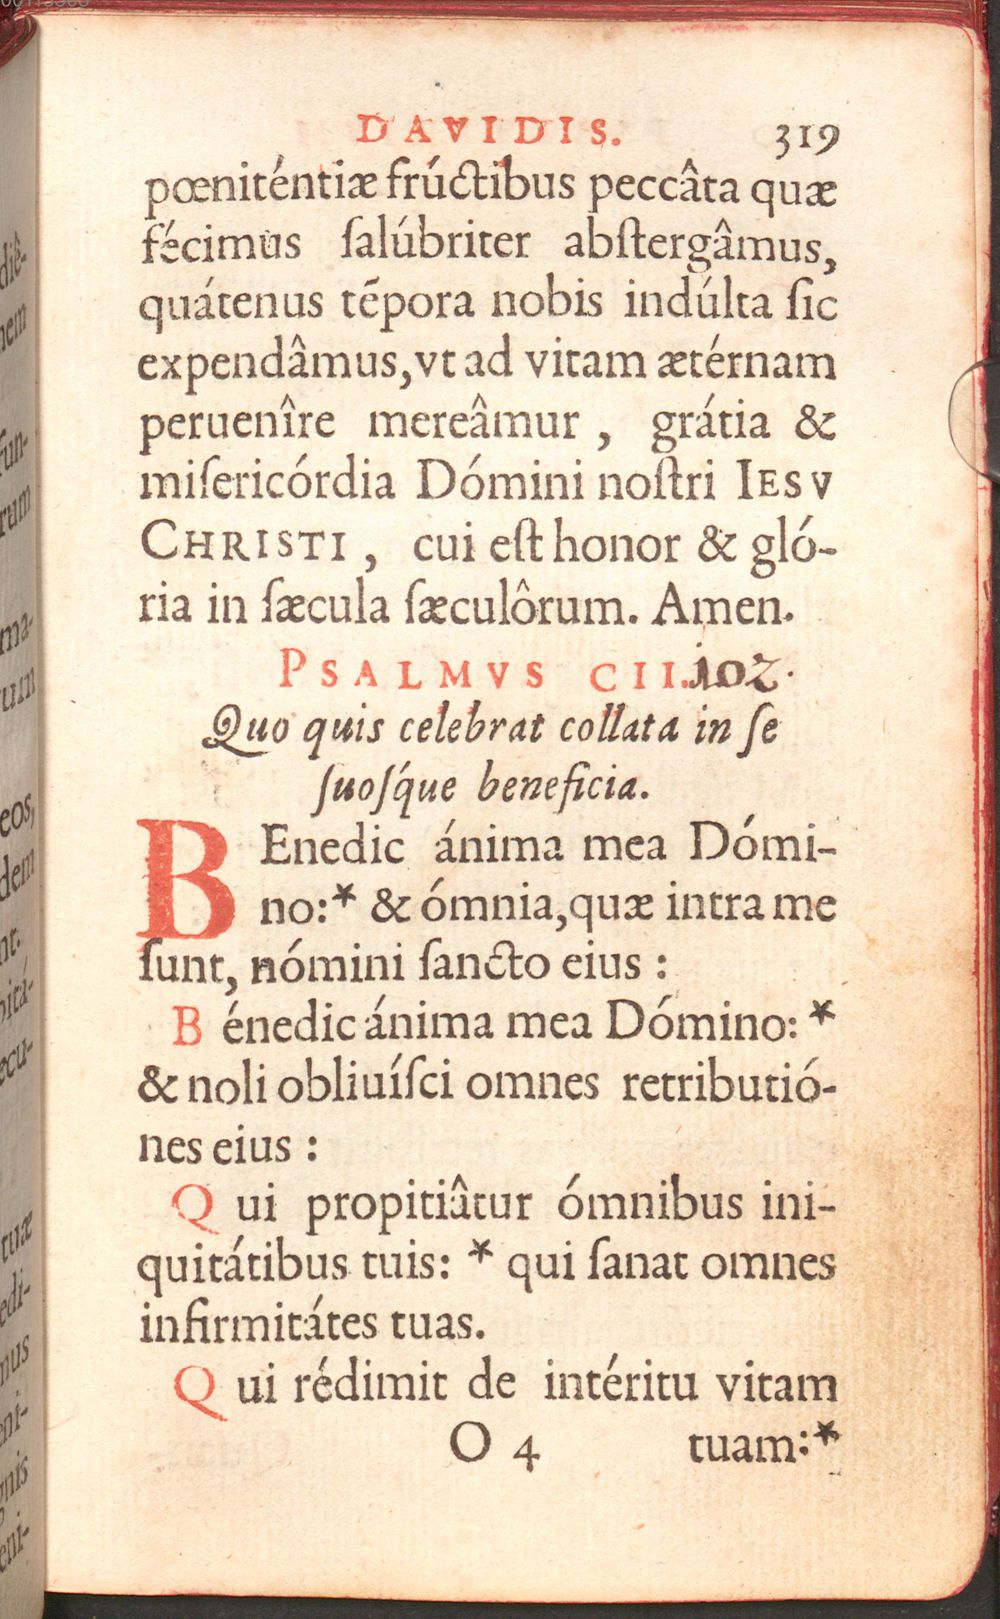 DAVIDIS. 319
pœniténtiæ frúctibus peccâta quæ
fécimus ſalúbriter abſtergâmus,
quátenus tẽpora nobis indúlta ſic
expendâmus, vt ad vitam ætérnam
peruenîre mereâmur , grátia &
miſericórdia Dómini noſtri IESV
CHRISTI , cui eſt honor & gló-
ria in ſæcula ſæculôrum. Amen.
PSALMVS CII. 102.
Quo quis celebrat collata in ſe
ſuoſq́ue beneficia.
BEnedic ánima mea Dómi-
no:* & ómnia, quæ intra me
ſunt, nómini ſancto eius :
Bénedic ánima mea Dómino: *
& noli obliuíſci omnes retributió-
nes eius :
Qui propitiâtur ómnibus ini-
quitátibus tuis: * qui ſanat omnes
infirmitátes tuas.
Qui rédimit de intéritu vitam
O 4 tuam:*